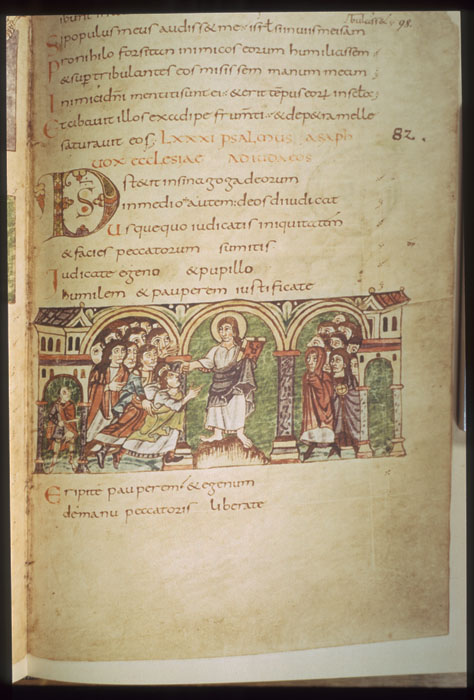 populus meus audisset me · isrl si in uiis meis am
pronihilo forsitan inimicos eorum humiliassem ·
& sup tribulantes eos misissem manum meam ;
Inimici dni mentiti sunt ei · & erit tempus eorum in sela ;
Et cibauit illos ex adipe frumti · & de petra melle
saturauit eos ; LXXXI PSALMUS ASAPH
82.
UOX ECCLESIAE AD IUDAEOS
DS stetit in sinagoga deorum
in medio autem deos diiudicat
Usquequo iudicatis iniquitatem
& facies peccatorum sumitis
Iudicate egeno & pupillo
humilem & pauperem iustificate
Eripite pauperem & egenum
de manu peccatoris liberate